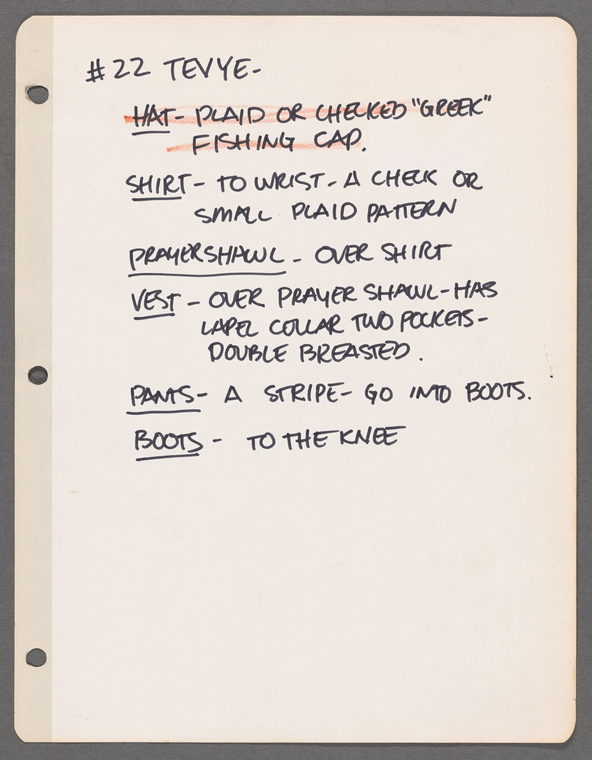 #22 TEVYE-
HAT- PLAID OR CHECKED "GREEK"
FISHING CAP.
SHIRT- TO WRIST- A CHECK OR
SMALL PLAID PATTERN
PRAYERSHAWL - OVER SHIRT
VEST - OVER PRAYER SHAWL- HAS
LAPEL COLLAR TWO POCKETS-
DOUBLE BREASTED.
PANTS- A STRIPE- GO INTO BOOTS.
BOOTS - TO THE KNEE